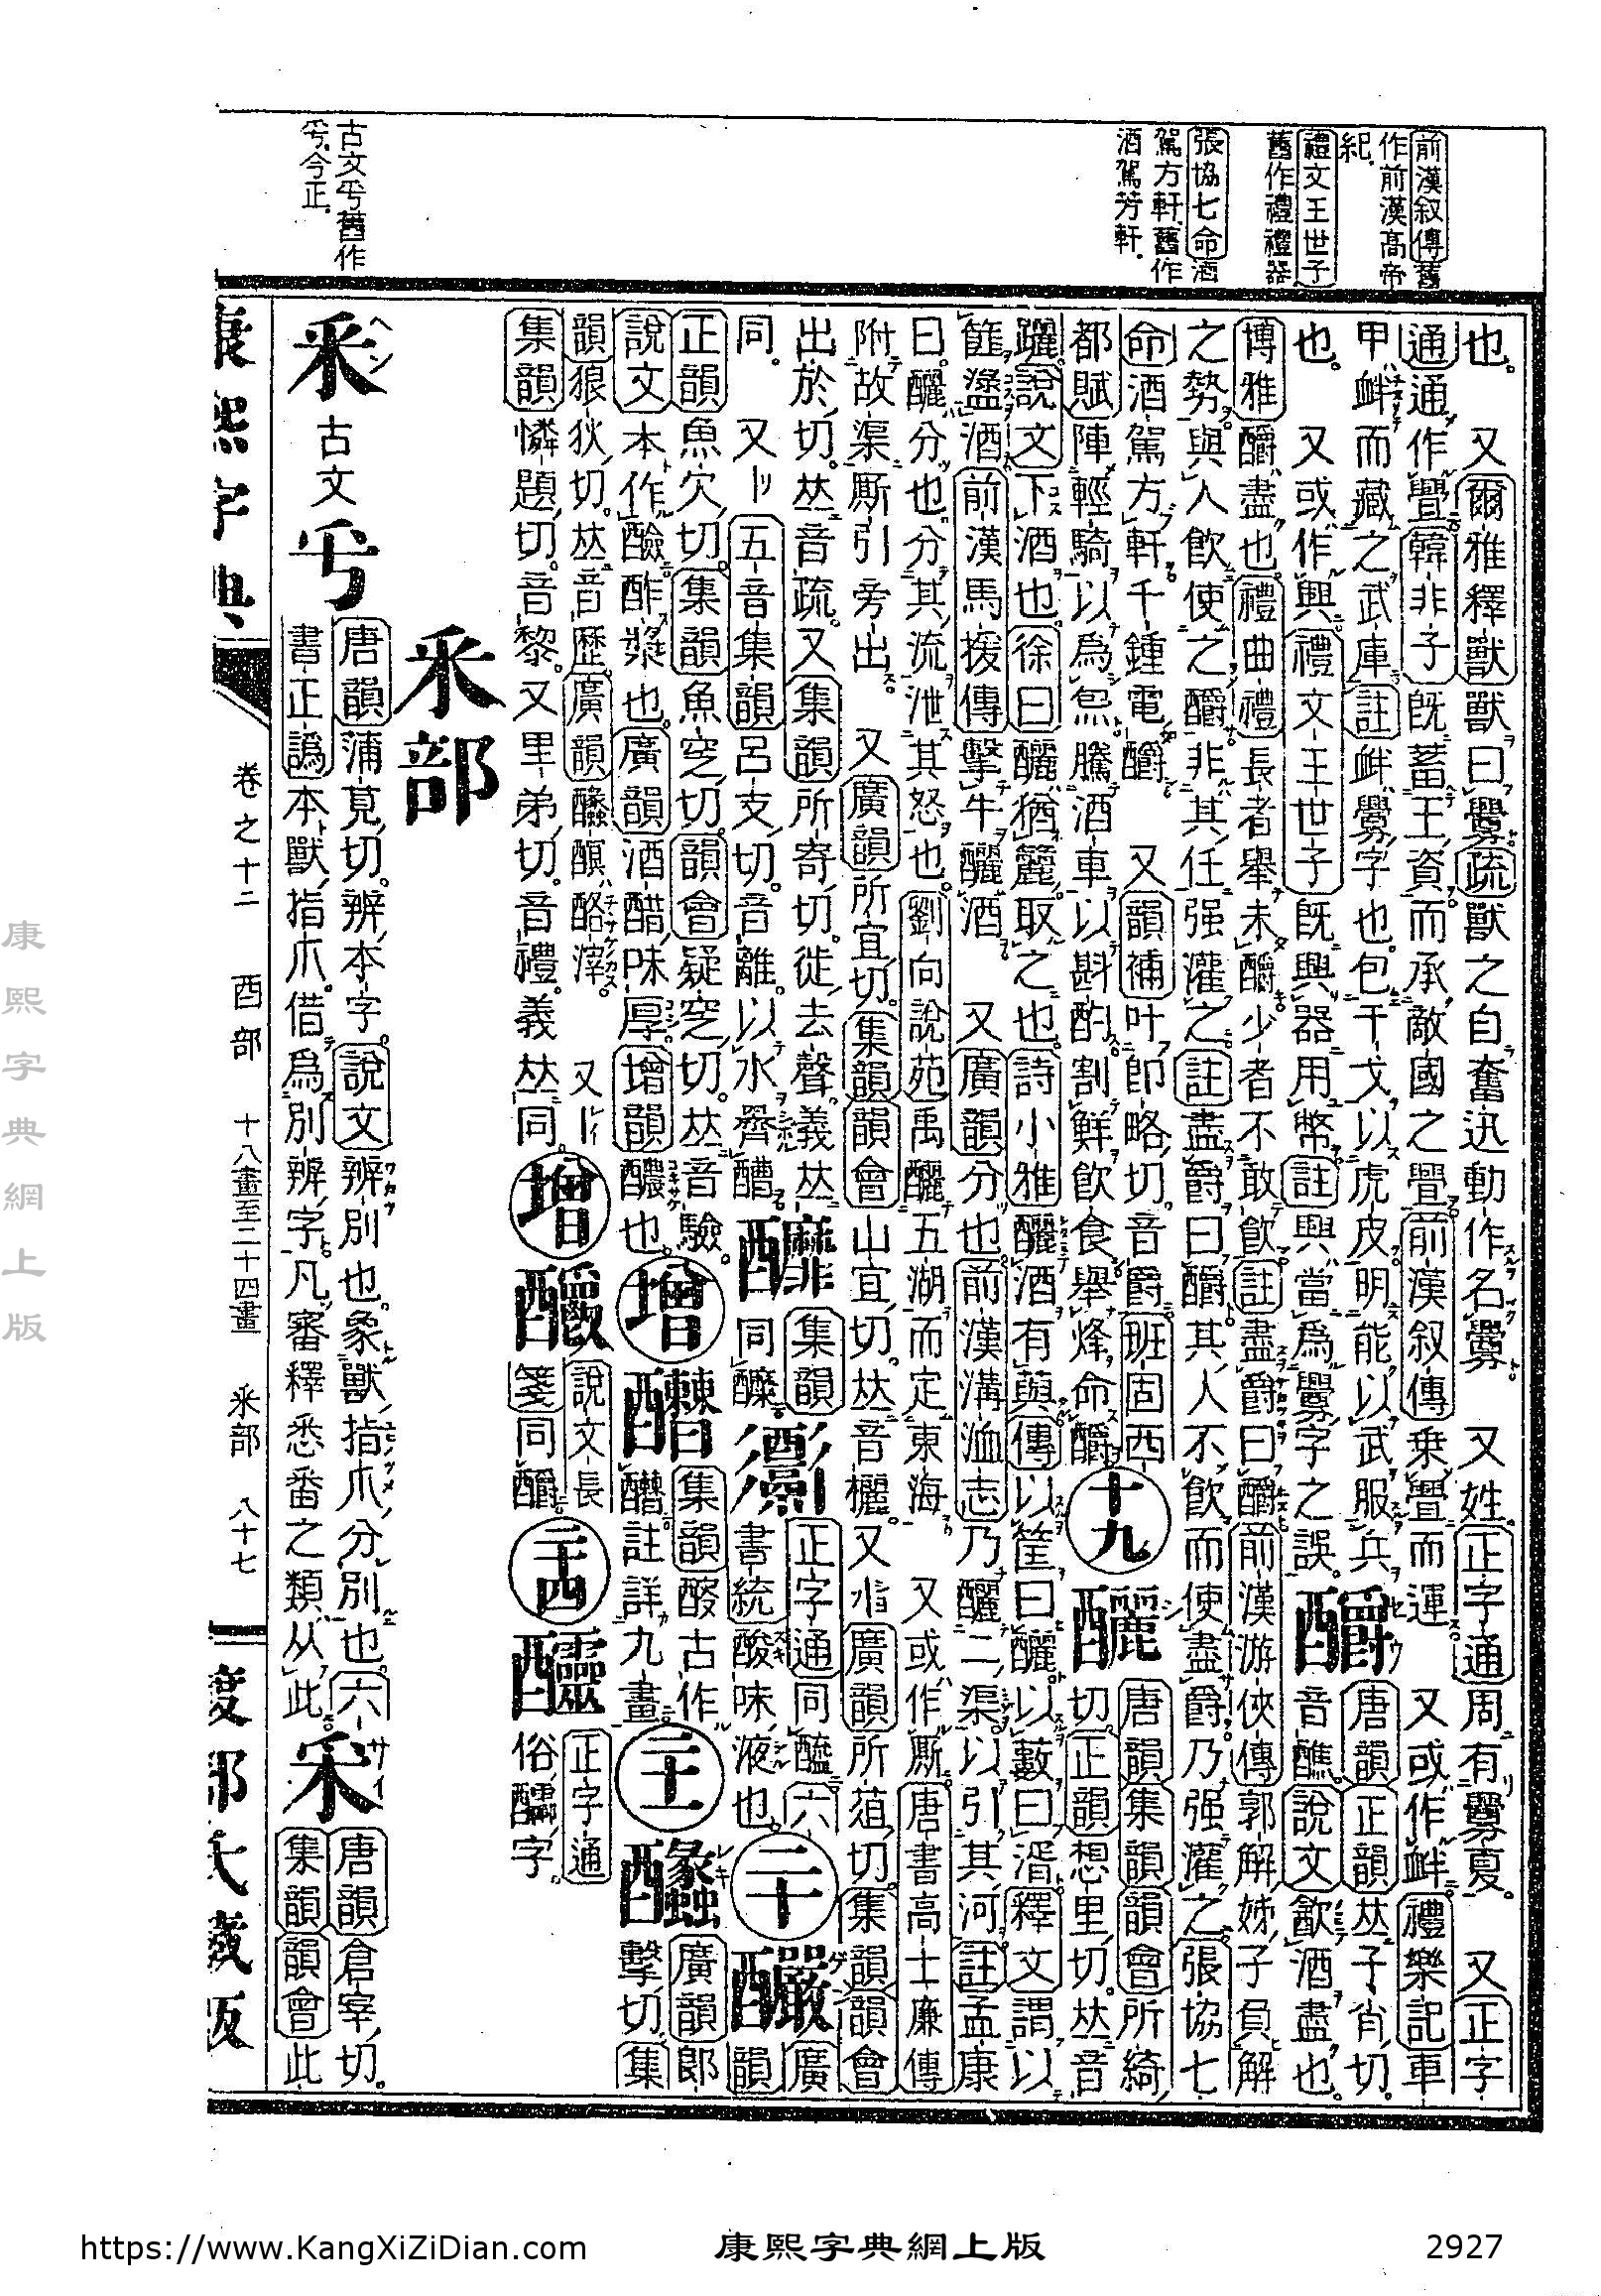 前漢叙傳舊
作前漢高帝
紀
禮文王世子
舊作禮禮器
張協七命酒
駕方軒舊作
酒駕芳軒
古文𠂬舊作
今正
也 又爾雅釋獸獸曰釁疏獸之自奮迅動作名釁 又姓正字通周有釁夏 又正字
通通作舋韓非子旣蓄王資而承敵國之舋前漢叙傳乗舋而運 又或作衅禮樂記車
甲衅而藏之武庫註衅釁字也包干戈以虎皮明能以武服兵
也 又或作興禮文王世子旣興器用幣註興當爲釁字之誤
釂 唐韻正韻𠀤子肖切
音醮說文歠酒盡也
博雅釂盡也禮曲禮長者舉未釂少者不敢飮註盡爵曰釂前漢游俠傳郭解姊子負解
之勢與人飮使之釂非其任强灌之註盡爵曰釂其人不飮而使盡爵乃强灌之張協七
命酒駕方軒千鍾電釂 又韻補叶卽略切音爵班固西
都賦陣輕騎以爲炰騰酒車以斟酌割鮮飮食舉烽命釂
十九
釃 唐韻集韻韻會所綺
切正韻想里切𠀤音
躧說文下酒也徐曰釃猶籭取之也詩小雅釃酒有藇傳以筐曰釃以藪曰湑釋文謂以
篚盪酒前漢馬援傳擊牛釃酒 又廣韻分也前漢溝洫志乃釃二渠以引其河註孟康
曰釃分也分其流泄其怒也劉向說苑禹釃五湖而定東海 又或作廝唐書高士廉傳
附故渠廝引旁出 又廣韻所宜切集韻韻會山宜切𠀤音襹又廣韻所葅切集韻韻會
出於切𠀤音疏又集韻所寄切徙去聲義𠀤
同 又五音集韻呂支切音離以水齊醩
集韻
同醾
正字通同醯六
書統酸味液也
二十
釅 廣
韻
正韻魚欠切集韻魚窆切韻會疑窆切𠀤音驗
說文本作醶酢漿也廣韻酒醋味厚增韻醲也
增
集韻酘古作
註詳九畫
二十一
蠡 廣韻郎
擊切集
韻狼狄切𠀤音歷廣韻醨酪滓 又
集韻憐題切音黎又里弟切音禮義𠀤同
增
說文長
箋同釂
二十四
醽 正字通
俗醽字
釆部
釆 古文 𠂬 唐韻蒲莧切辨本字說文辨別也象獸指爪分別也六
書正譌本獸指爪借爲別辨字凡審釋悉番之類从此
采 唐韻倉宰切
集韻韻會此
康熙字典
卷之十二 酉部 十八畫至二十四畫 釆部 八十七
康熙字典網上版
https://www.KangXiZiDian.com
康熙字典網上版
2927